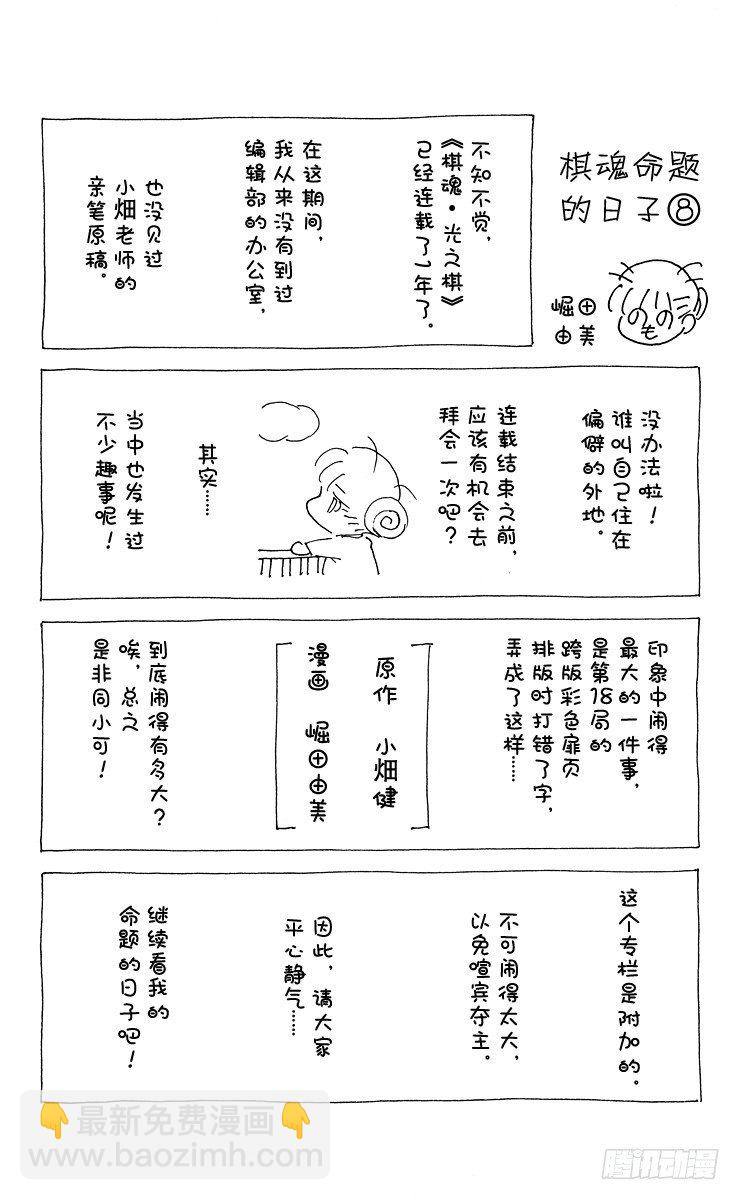 棋魂命题
的日子⑧
崛田
由美
不知不觉，
《棋魂·光之棋》
已经连载了1年了。
在这期间，
我从来没有到过
编辑部的办公室，
也没见过
小畑老师的
亲笔原稿。
没办法啦！
谁叫自己住在
偏僻的外地。
连载结束之前，
应该有机会去
拜会一次吧？
其实……
当中也发生过
不少趣事呢！
印象中闹得
最大的一件事，
是第18局的
跨版彩色扉页
排版时打错了字，
弄成了这样……
原作 小畑健
漫画 崛田由美
到底闹得有多大？
唉，总之
是非同小可！
这个专栏是附加的。
不可闹得太大，
以免喧宾夺主。
因此，请大家
平心静气……
继续看我的
命题的日子吧！
最新免费漫画
www.baozimh.com
腾讯动漫